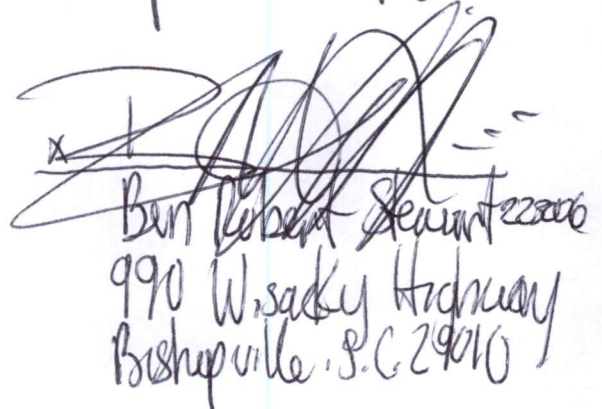 x
Ben Robert Stewart
990 Wisacky Highway
Bishopville. S.C. 29010